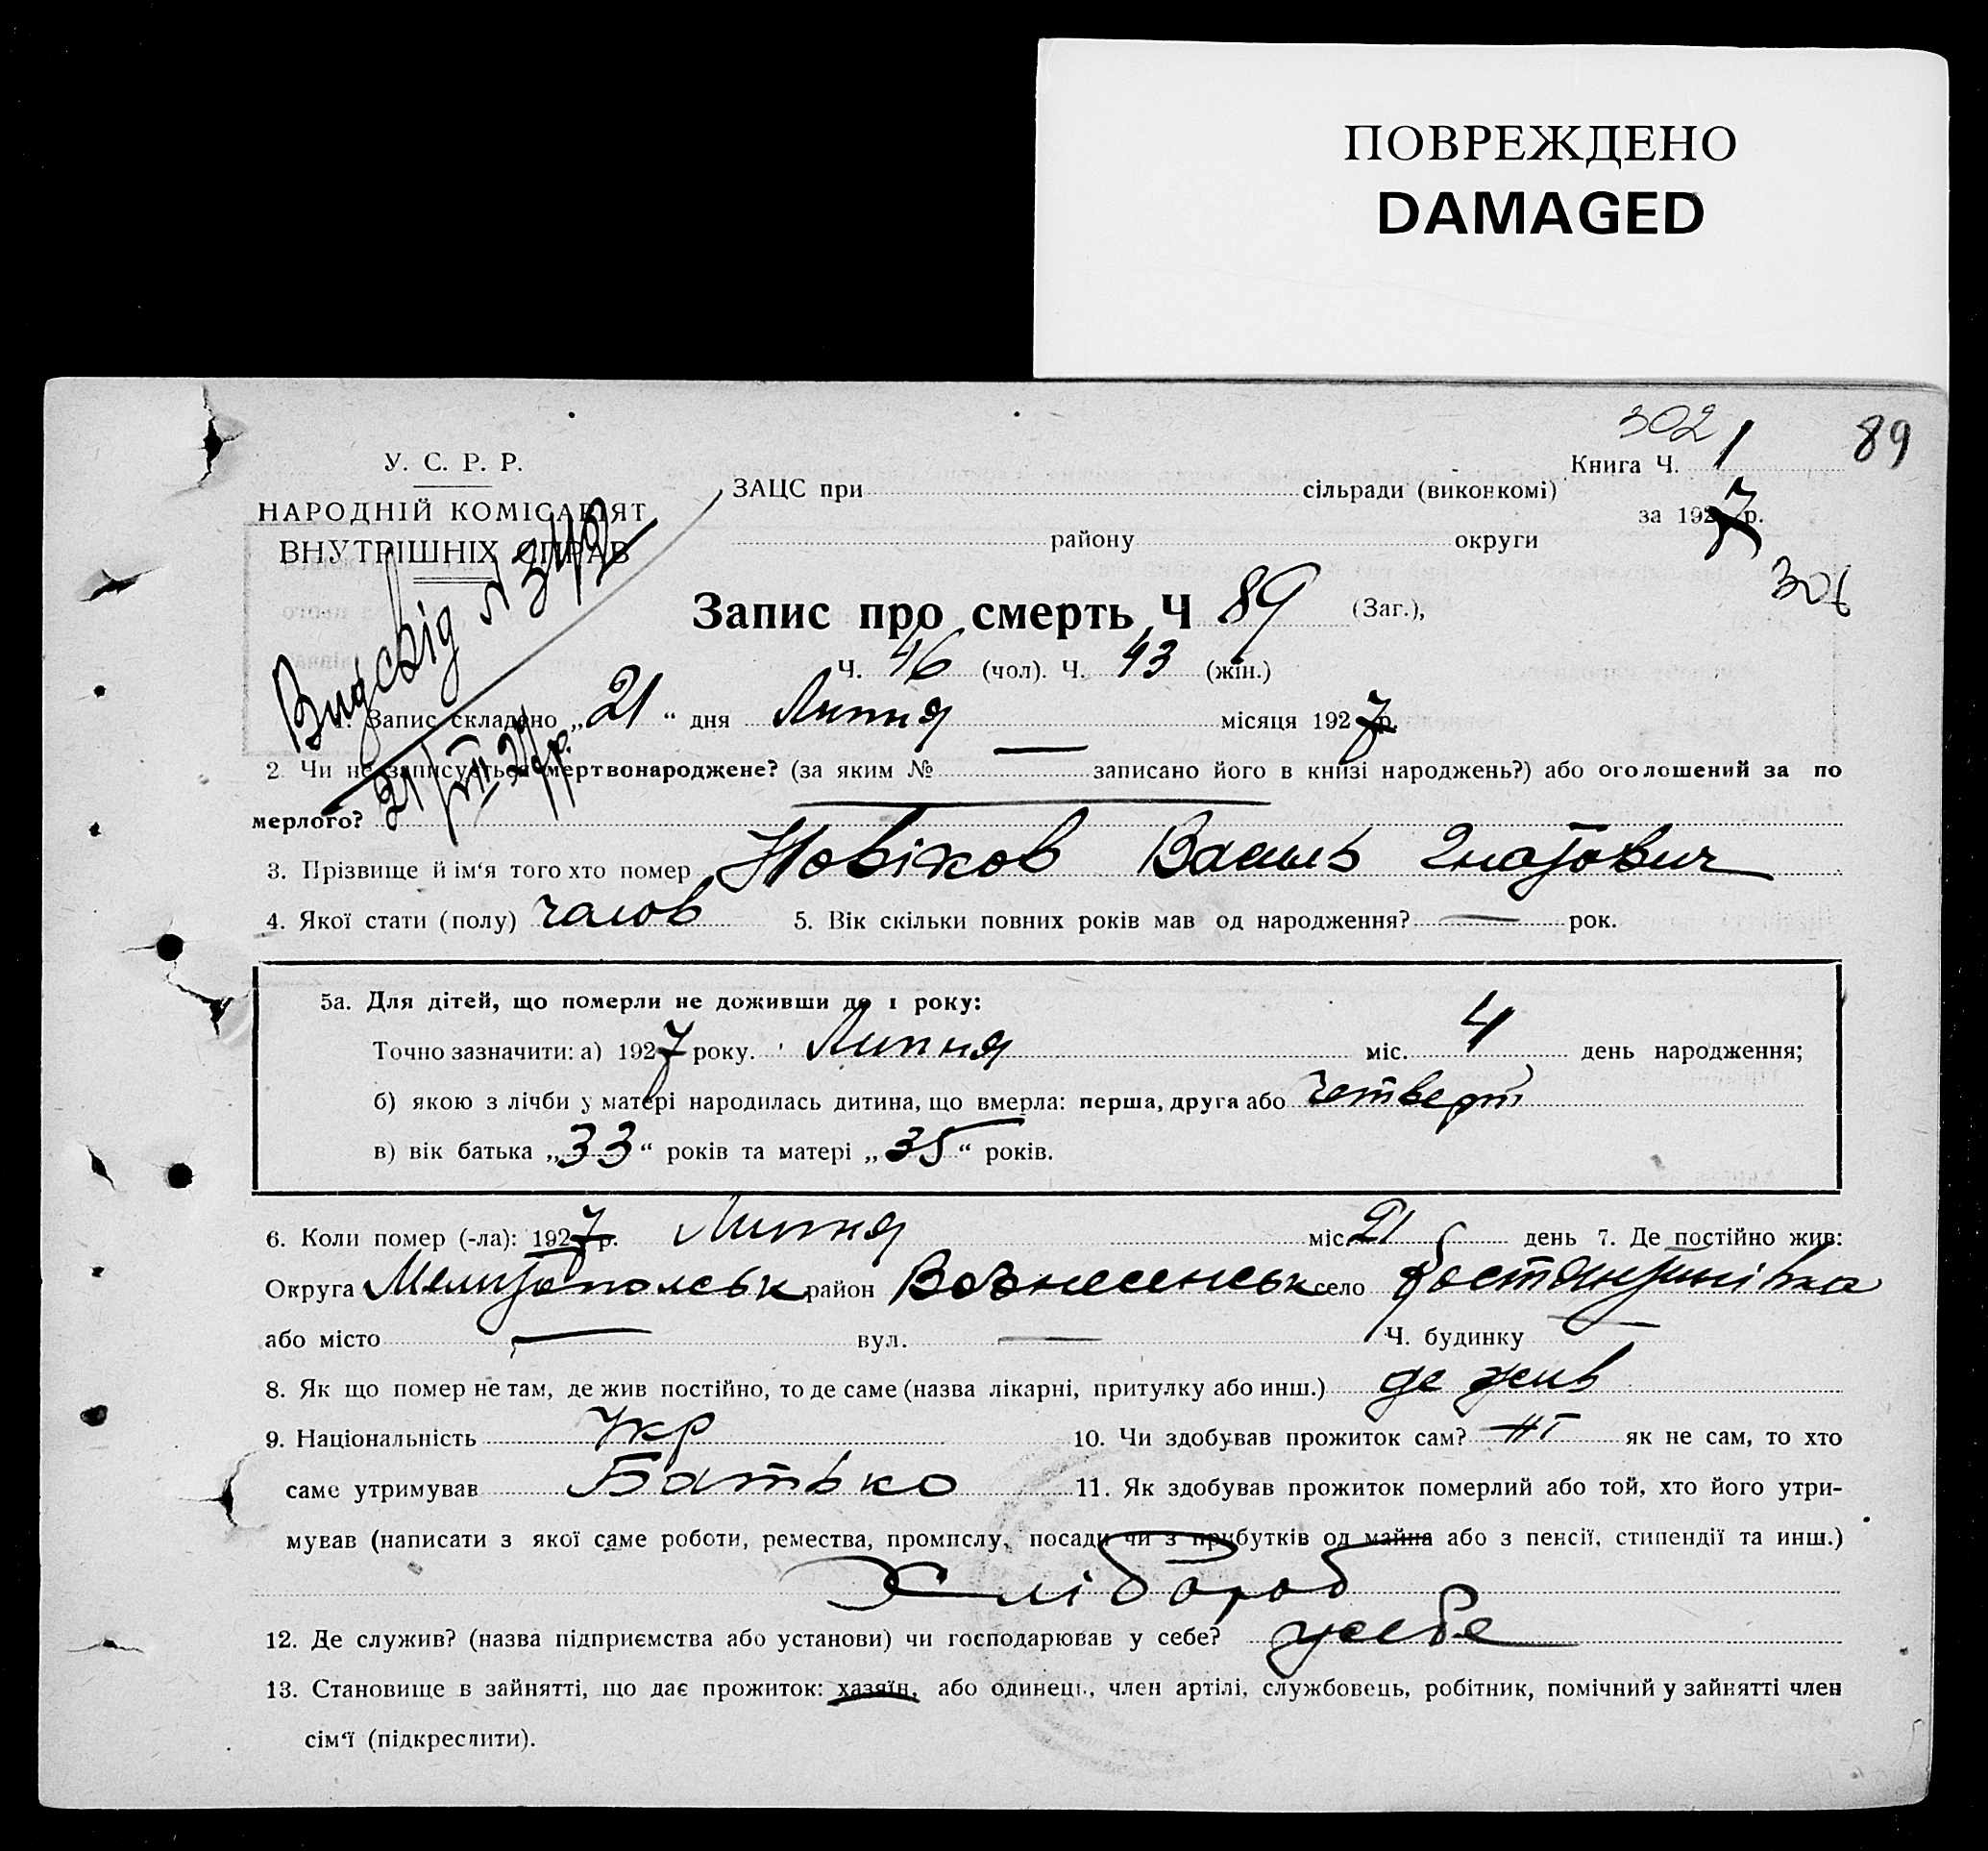 ПОВРЕЖДЕНО
DAMAGED
302
89
У. С. Р. Р.
Книга Ч. 1
ЗАЦС при сільради (виконкомі)
НАРОДНІЙ КОМІСАРІЯТ
за 1927 р.
ВНУТРІШНІХ СПРАВ
району округи
306
Запис про смерть Ч 89 (Заг.),
Ч. 46 (чол). Ч. 43 (жін.)
Вид свід N 3402
21/VII 27 р.
1. Запис складено „21“ дня Липня місяця 1927 р.
2. Чи не записується мертвонароджене? (за яким № — записано його в книзі народжень?) або оголошений за по
мерлого?
3. Прізвище й ім‘я того хто помер Новіков Василь Гнатович
4. Якої стати (полу) чолов 5. Вік скільки повних років мав од народження? — рок.
5а. Для дітей, що померли не доживши до 1 року:
Точно зазначити: а) 1927 року. Липня міс. 4 день народження;
б) якою з лічби у матері народилась дитина, що вмерла: перша, друга або четверт
в) вік батька „33“ років та матері „35“ років.
6. Коли помер (-ла): 1927 р. Липня міс. 21 день 7. Де постійно жив:
Округа Мелитопольськ район Вознесенськ село Костянтинівка
або місто — вул. — Ч. будинку —
8. Як що помер не там, де жив постійно, то де саме (назва лікарні, притулку або инш.) де жив
9. Національність Укр 10. Чи здобував прожиток сам? ні як не сам, то хто
саме утримував Батько 11. Як здобував прожиток померлий або той, хто його утри-
мував (написати з якої саме роботи, ремества, промислу, посади чи з прибутків од майна або з пенсії, стипендії та инш.)
Хлібороб
12. Де служив? (назва підприємства або установи) чи господарював у себе? у себе
13. Становище в зайнятті, що дає прожиток: хазяїн, або одинець, член артілі, службовець, робітник, помічний у зайнятті член
сім‘ї (підкреслити).